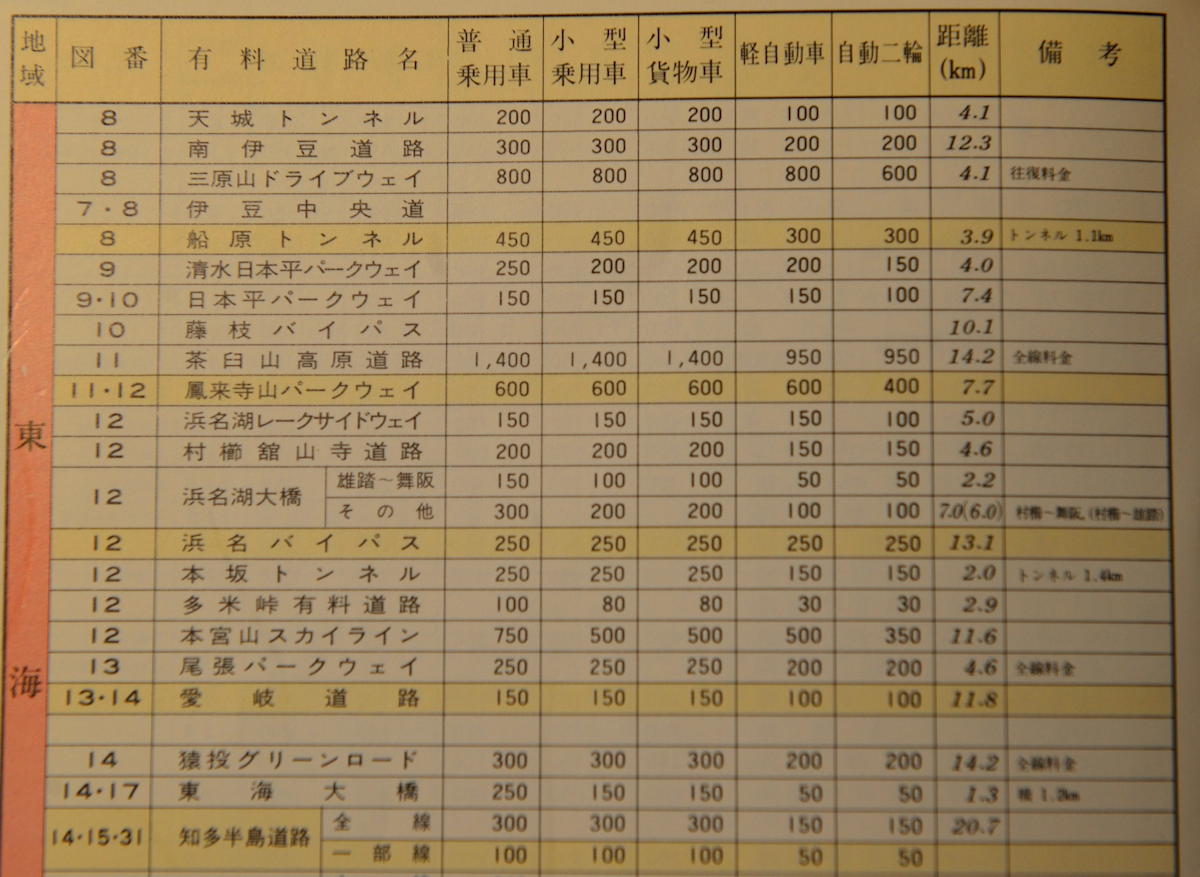 地域 図番 有料道路名 普通乗用車 小型乗用車 小型貨物車 軽自動車 自動二輪 距離(km) 備考
東海
8 天城トンネル 200 200 200 100 100 4.1
8 南伊豆道路 300 300 300 200 200 12.3
8 三原山ドライブウェイ 800 800 800 800 600 4.1 往復料金
7・8 伊豆中央道
8 船原トンネル 450 450 450 300 300 3.9 トンネル 1.1km
9 清水日本平パークウェイ 250 200 200 200 150 4.0
9・10 日本平パークウェイ 150 150 150 150 100 7.4
10 藤枝バイパス 10.1
11 茶臼山高原道路 1,400 1,400 1,400 950 950 14.2 全線料金
11・12 鳳来寺山パークウェイ 600 600 600 600 400 7.7
12 浜名湖レークサイドウェイ 150 150 150 150 100 5.0
12 村櫛舘山寺道路 200 200 200 150 150 4.6
12 浜名湖大橋 雄踏〜舞阪 150 100 100 50 50 2.2
その他 300 200 200 100 100 7.0(6.0) 村櫛〜舞阪,(村櫛〜雄踏)
12 浜名バイパス 250 250 250 250 250 13.1
12 本坂トンネル 250 250 250 150 150 2.0 トンネル 1.4km
12 多米峠有料道路 100 80 80 30 30 2.9
12 本宮山スカイライン 750 500 500 500 350 11.6
13 尾張パークウェイ 250 250 250 200 200 4.6 全線料金
13・14 愛岐道路 150 150 150 100 100 11.8
14 猿投グリーンロード 300 300 300 200 200 14.2 全線料金
14・17 東海大橋 250 150 150 50 50 1.3 橋 1.2km
14・15・31 知多半島道路 全線 300 300 300 150 150 20.7
一部線 100 100 100 50 50